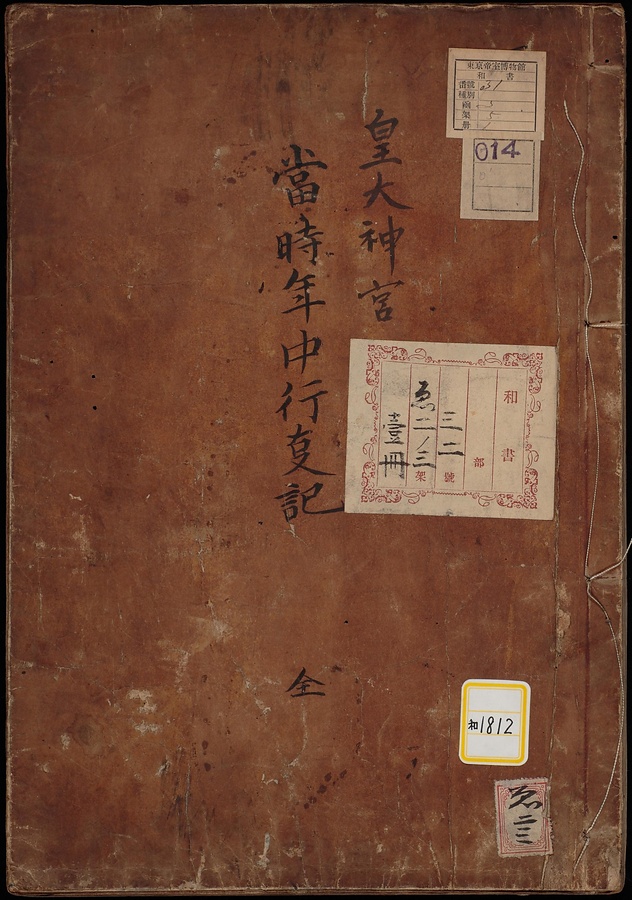 皇大神宮
當時年中行叓記
全
東京帝室博物館
和書
番號
種別
函 3
架 5
冊 1
014
和書
部
三二號
ゑ二ノ三架
壹冊
和1812
ゑ二三